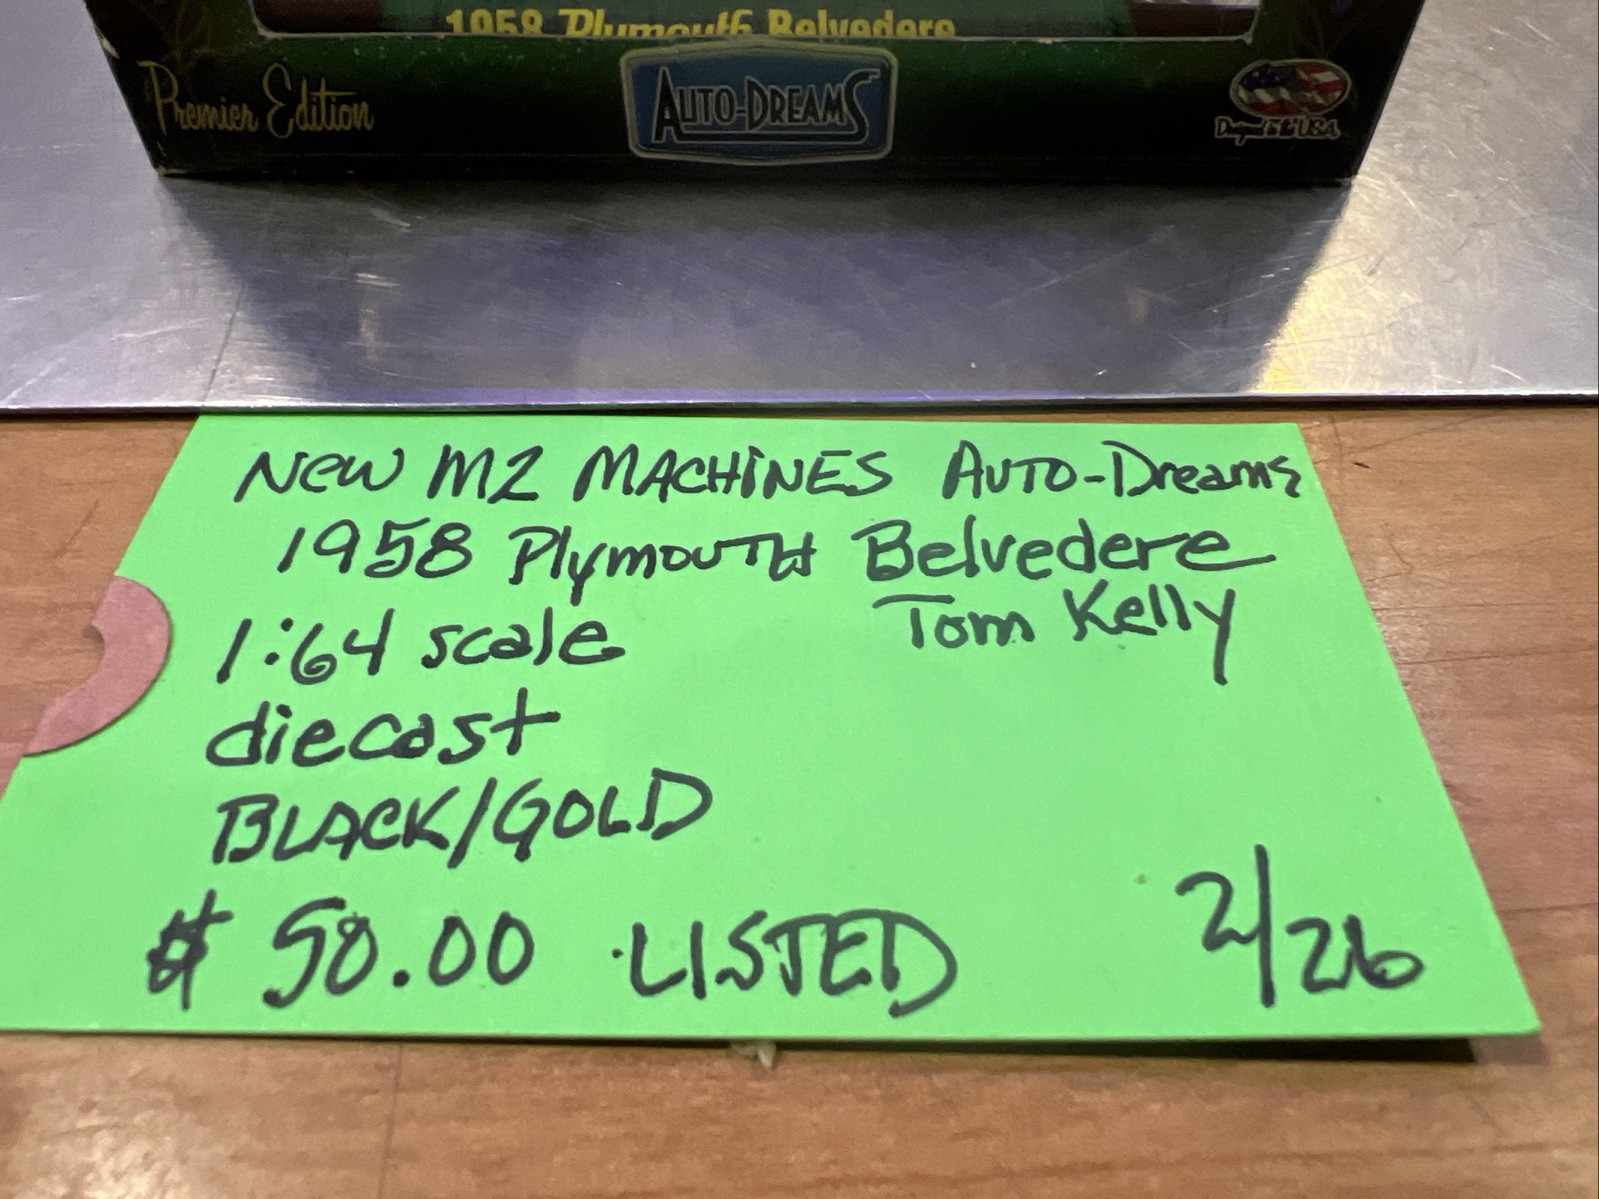 1958 Plymouth Belvedere
Premier Edition
AUTO-DREAMS
Designed in the USA
New M2 MACHINES AUTO-Dreams
1958 Plymouth Belvedere
1:64 scale
Tom Kelly
diecast
BLACK/GOLD
$ 58.00 LISTED
2/26